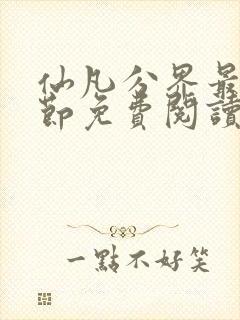 仙凡分界最
節免費閱讀
一點不好笑